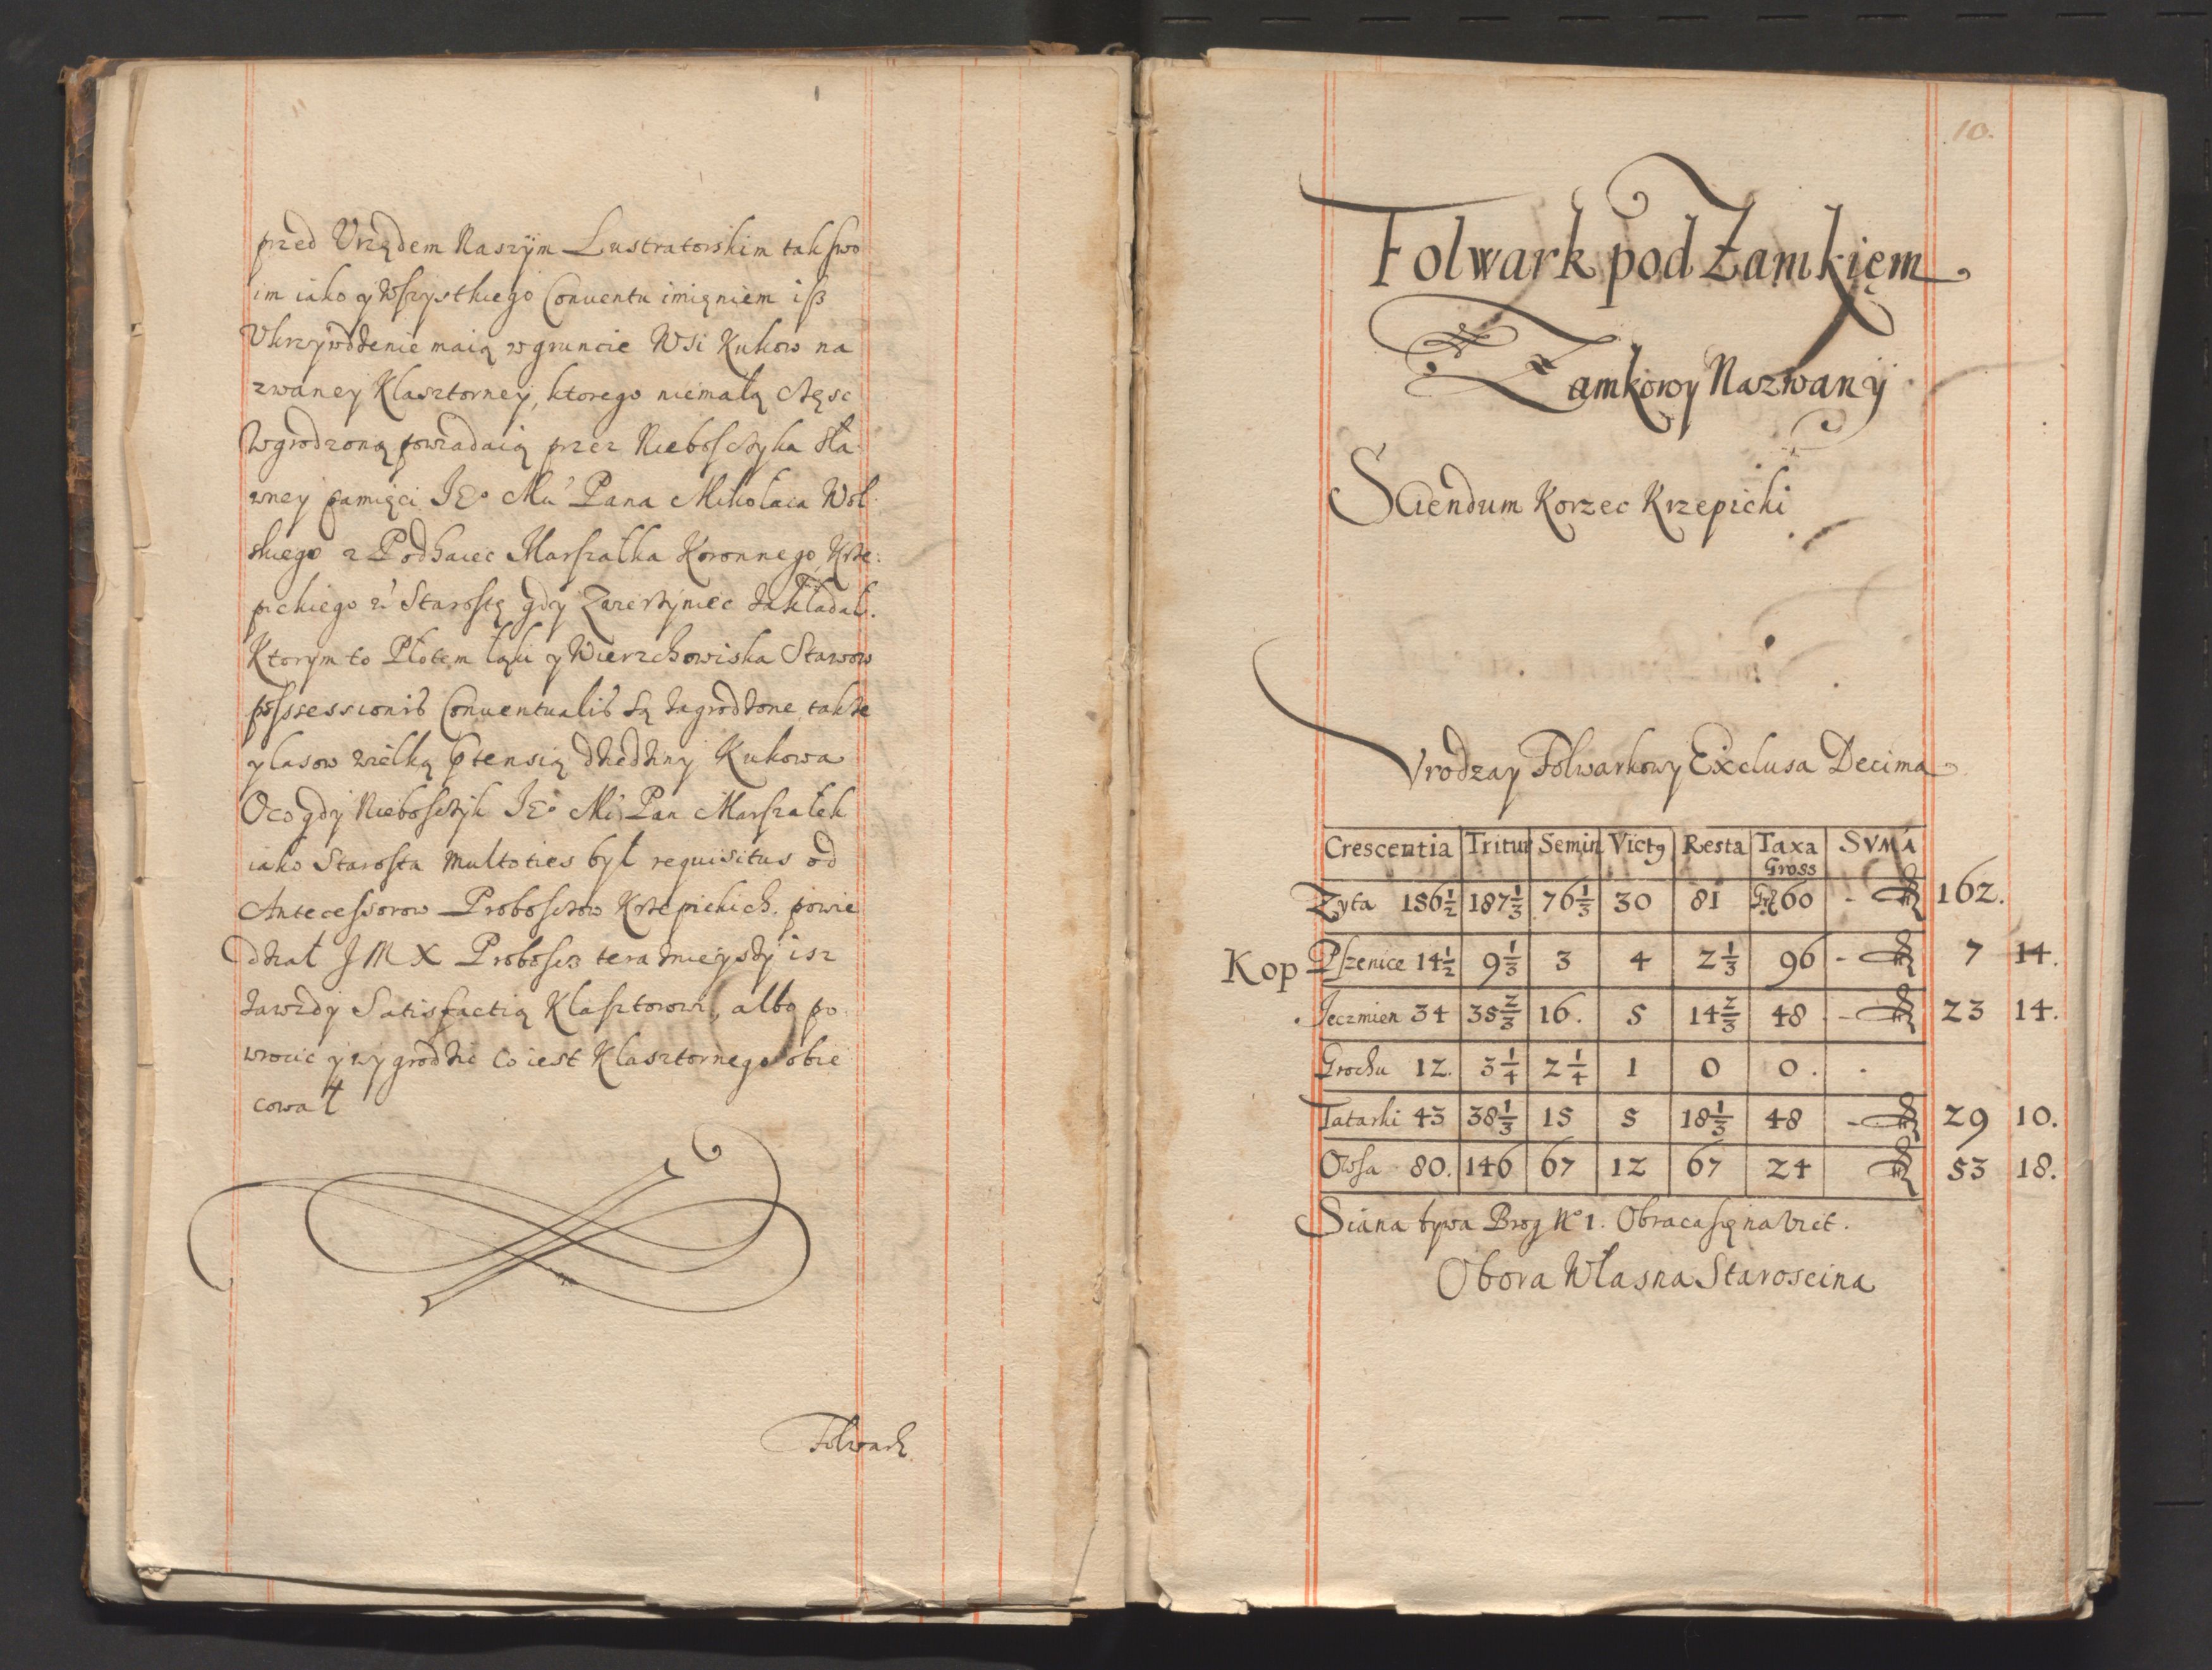 przed Vrzędem Naszÿm Lustratorskim tak swo
im iako y Wszystkiego Conuentu imięniem iß
Vkrzywdzenie maią w gruncie Wsi Kukow na
zwaney Klasztorney, ktorego niemałą częsc
Wgrodzoną powiadaią przez Nieboszczyka sła
wney pamięci JEo Mci Pana Mikołaia Wol
skiego z Podhaiec Marszałka Koronnego, Krze:
pickiego Starostę gdy Zwierzyniec zakładał.
Ktorym to Płotem łąki y Wierzchowiska Stawow
possessionis Conuentualis są zagrodzone, także
y lasow wielką ptensią dziedziny Kukowa
Oco gdy Nieboszczyk JEo Mci Pan Marszałek
iako Starosta multoties był requisitus od
Antecessorow Proboszczow Krzepickich. powie
dział J M X Proboscz teraznieyszy isz
zawżdy Satisfactią Klasztorowi, albo po
wrocic y wygrodzic co iest Klasztornego obie
cował
Folwark
10.
Folwark pod Zamkięm
Zamkowy Nazwany
Sciendum Korzec Krzepicki
Vrodzay Folwarkowy Exclusa Decima
Crescentia Tritur Semin Vict9 Resta Taxa Gross SVMA
Zyta 186½ 187⅓ 76⅓ 30 81 60 - 162.
Kop Pszenice 14½ 9⅓ 3 4 2⅓ 96 - 7 14.
Jeczmien 34 35⅔ 16. 5 14⅔ 48 - 23 14.
Grochu 12. 3¼ 2¼ 1 0 0. .
Tatarki 43 38⅓ 15 5 18⅓ 48 - 29 10.
Owsa 80. 146 67 12 67 24 53 18.
Siana bywa Brog No 1. Obraca się na Vict.
Obora Własna Staroscina